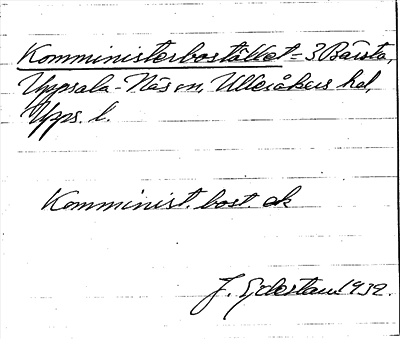 Komministerbostället = 3 Bärsta,
Uppsala-Näs sn, Ulleråkers hd,
Upps. l.
Komminist. bost. ek
J. Ejdestam 1932.